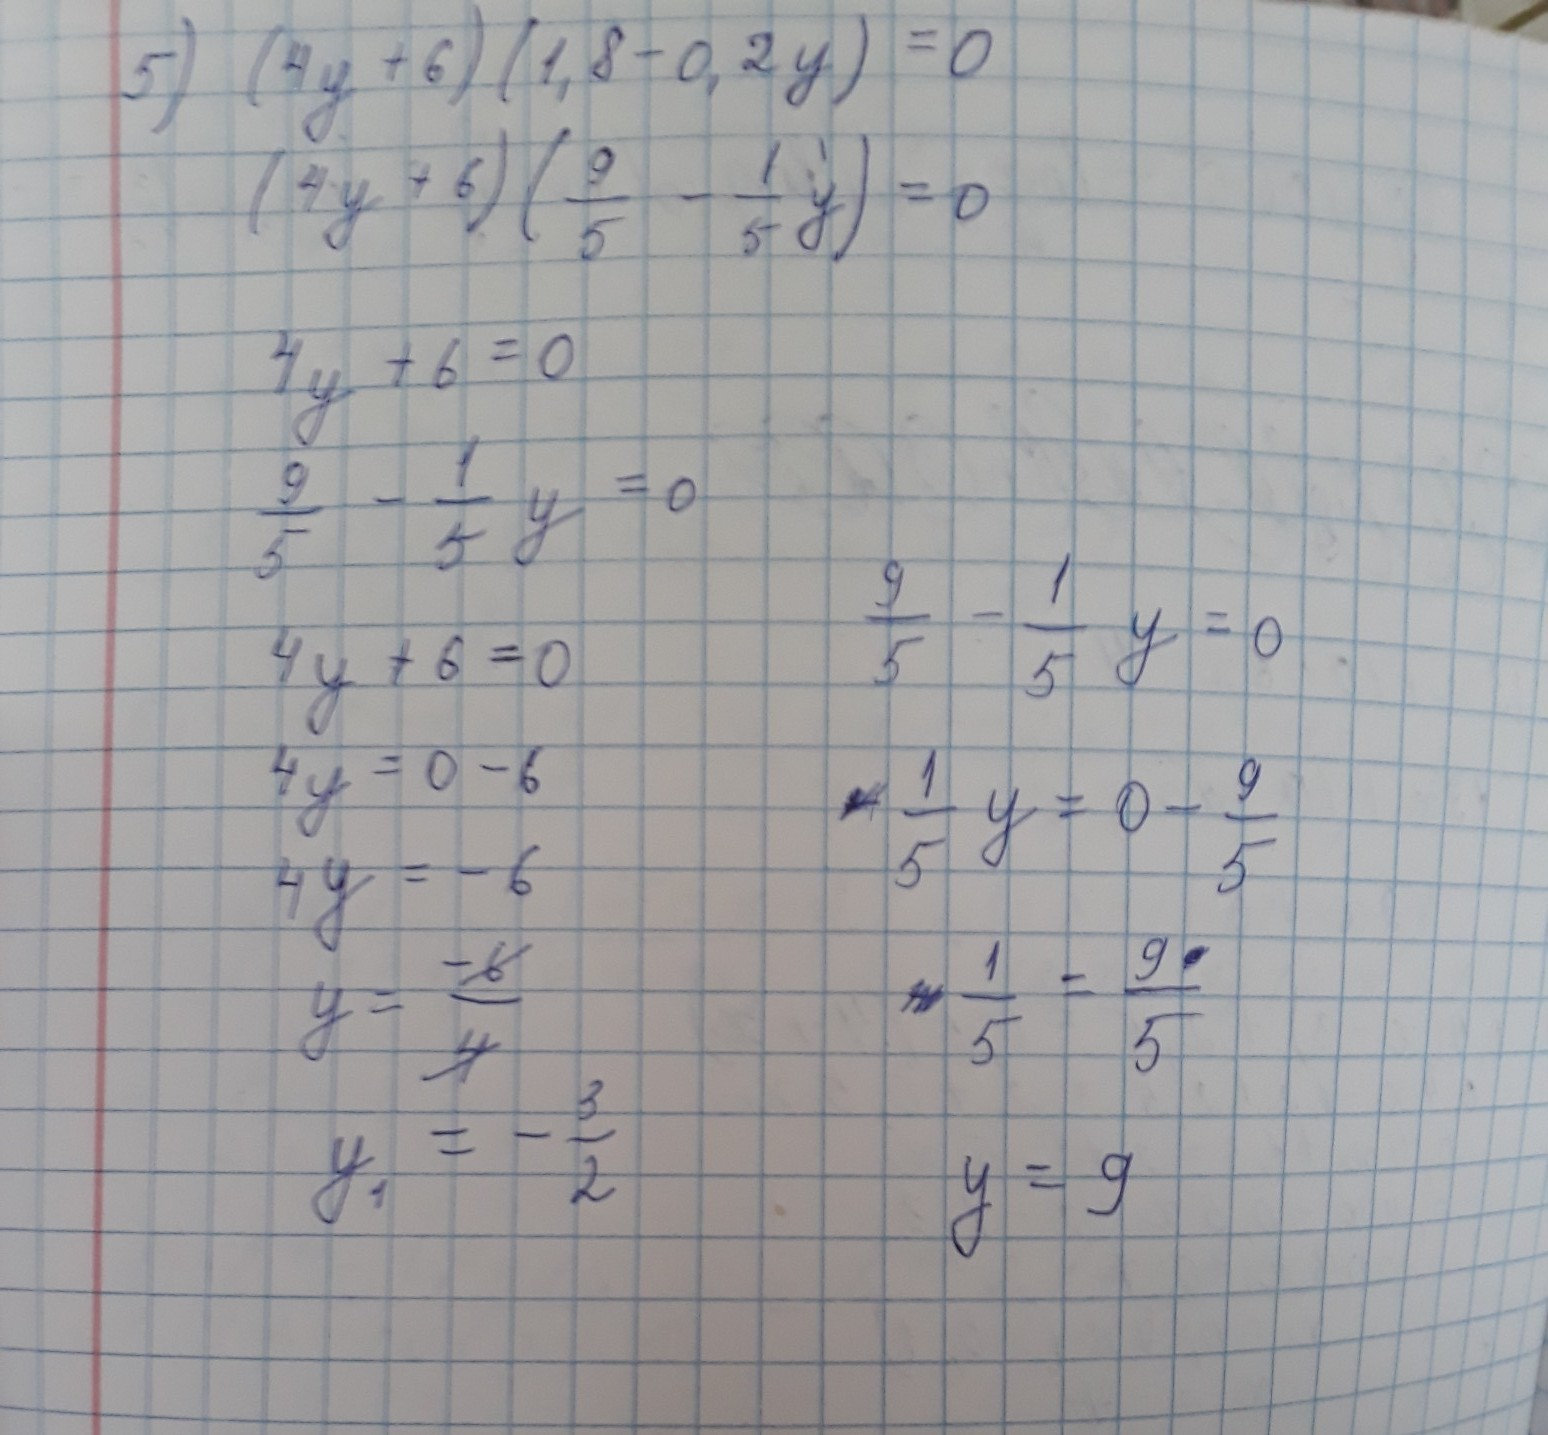 5) (4y + 6)(1,8 - 0,2y) = 0
(4y + 6)(9/5 - 1/5 y) = 0
4y + 6 = 0
9/5 - 1/5 y = 0
4y + 6 = 0
4y = 0 - 6
4y = - 6
y = -6/4
y₁ = - 3/2
9/5 - 1/5 y = 0
- 1/5 y = 0 - 9/5
1/5 = 9/5
y = 9